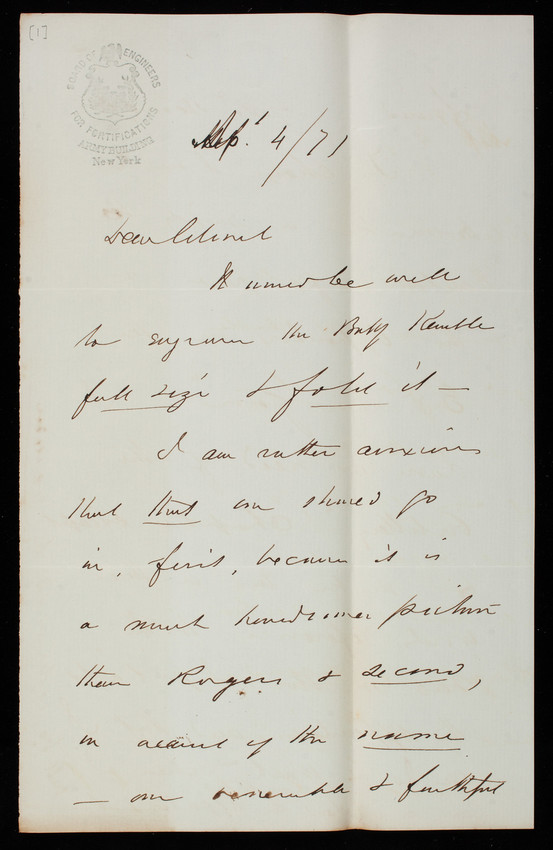 [1]
BOARD OF ENGINEERS
FOR FORTIFICATIONS
ARMY BUILDING
New York
4/71
Dear Colonel
It would be well
to engrave the Baty Kemble
full size & fold it —
I am rather anxious
that that one should go
in, first, because it is
a much handsomer picture
than Rodgers & second,
on account of the name
— our venerable & faithful